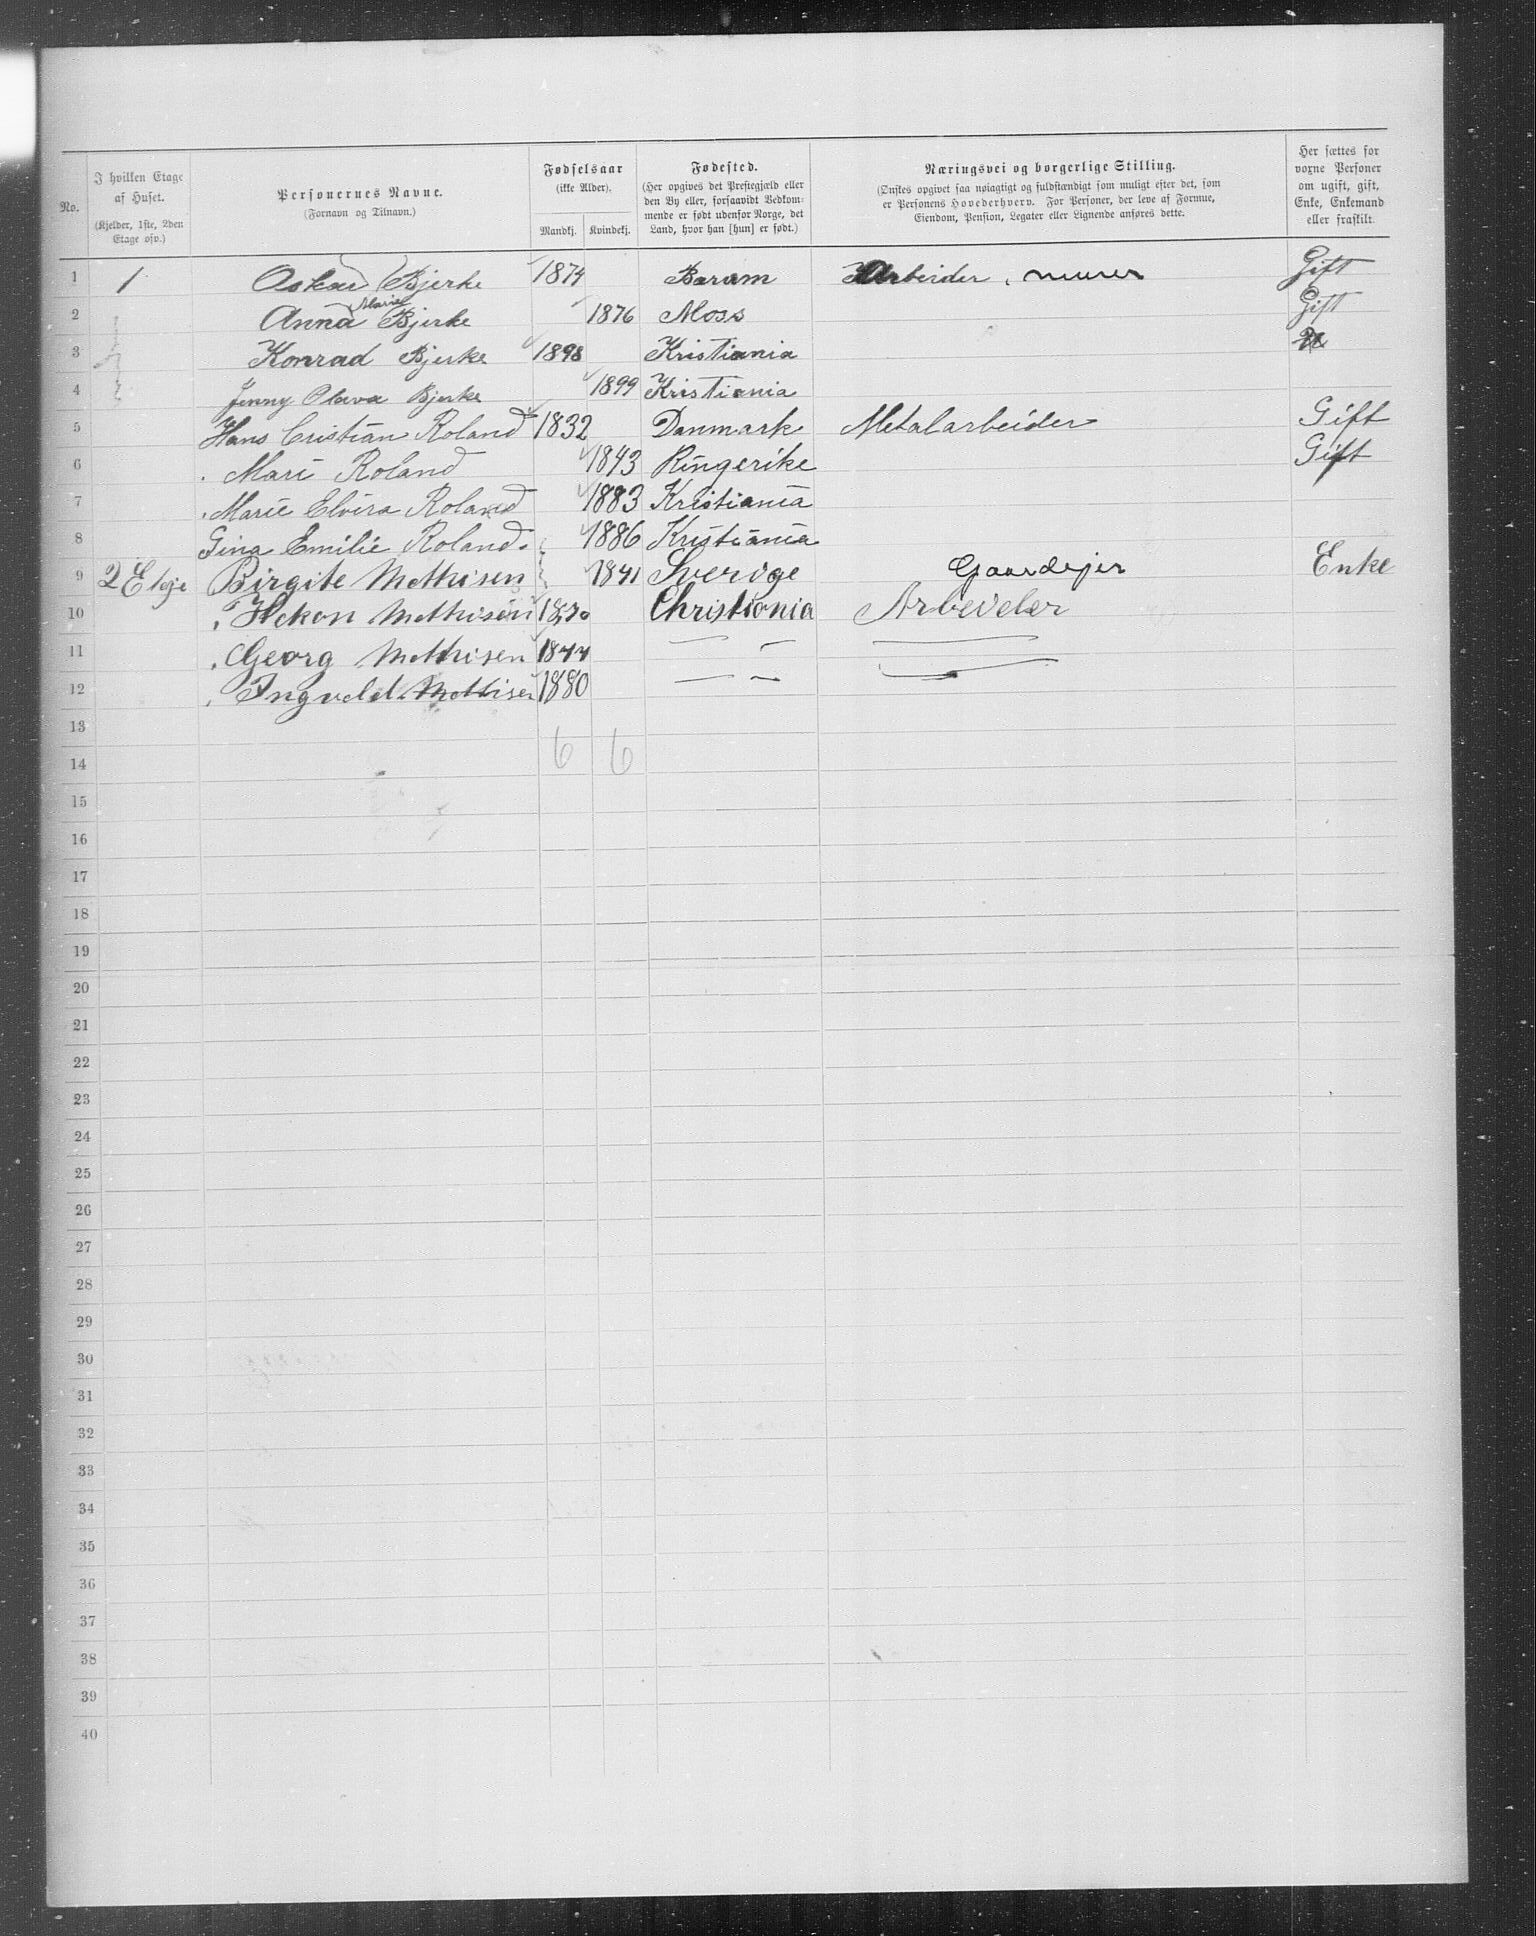 No.
I hvilken Etage af Huset.
(Kjelder, 1ste, 2den Etage osv.)
Personernes Navne.
(Fornavn og Tilnavn.)
Fødselsaar
(ikke Alder).
Mandkj. Kvindekj.
Fødested.
(Her opgives det Prestegjæld eller den By eller, forsaavidt Vedkommende er født udenfor Norge, det Land, hvor han [hun] er født.)
Næringsvei og borgerlige Stilling.
(Ønstes opgivet saa nøiagtigt og fuldstændigt som muligt efter det, som er Personens Hovederhverv. For Personer, der leve af Formue, Eiendom, Pension, Legater eller Lignende anføres dette.
Her sættes for voxne Personer om ugift, gift, Enke, Enkemand eller fraskilt.
1 1 Oskar Bjerke 1874 Bærum Arbeider, murer Gift
2 Anna Marie Bjerke 1876 Moss Gift
3 Konrad Bjerke 1898 Kristiania
4 Jenny Olava Bjerke 1899 Kristiania
5 Hans Cristian Roland 1832 Danmark Metalarbeider Gift
6 Mari Roland 1843 Ringerike Gift
7 Marie Elvira Roland 1883 Kristiania
8 Gina Emilie Roland. 1886 Kristiania
9 2 Etage Birgite Mathisen 1841 Sverige Gaardejer Enke
10 " Hakon Mathisen 1870 Christiania Arbeideler
11 " Georg Mathisen 1877 — " —
12 " Ingvald Mathisen 1880 — " —
13
14 6 6
15
16
17
18
19
20
21
22
23
24
25
26
27
28
29
30
31
32
33
34
35
36
37
38
39
40